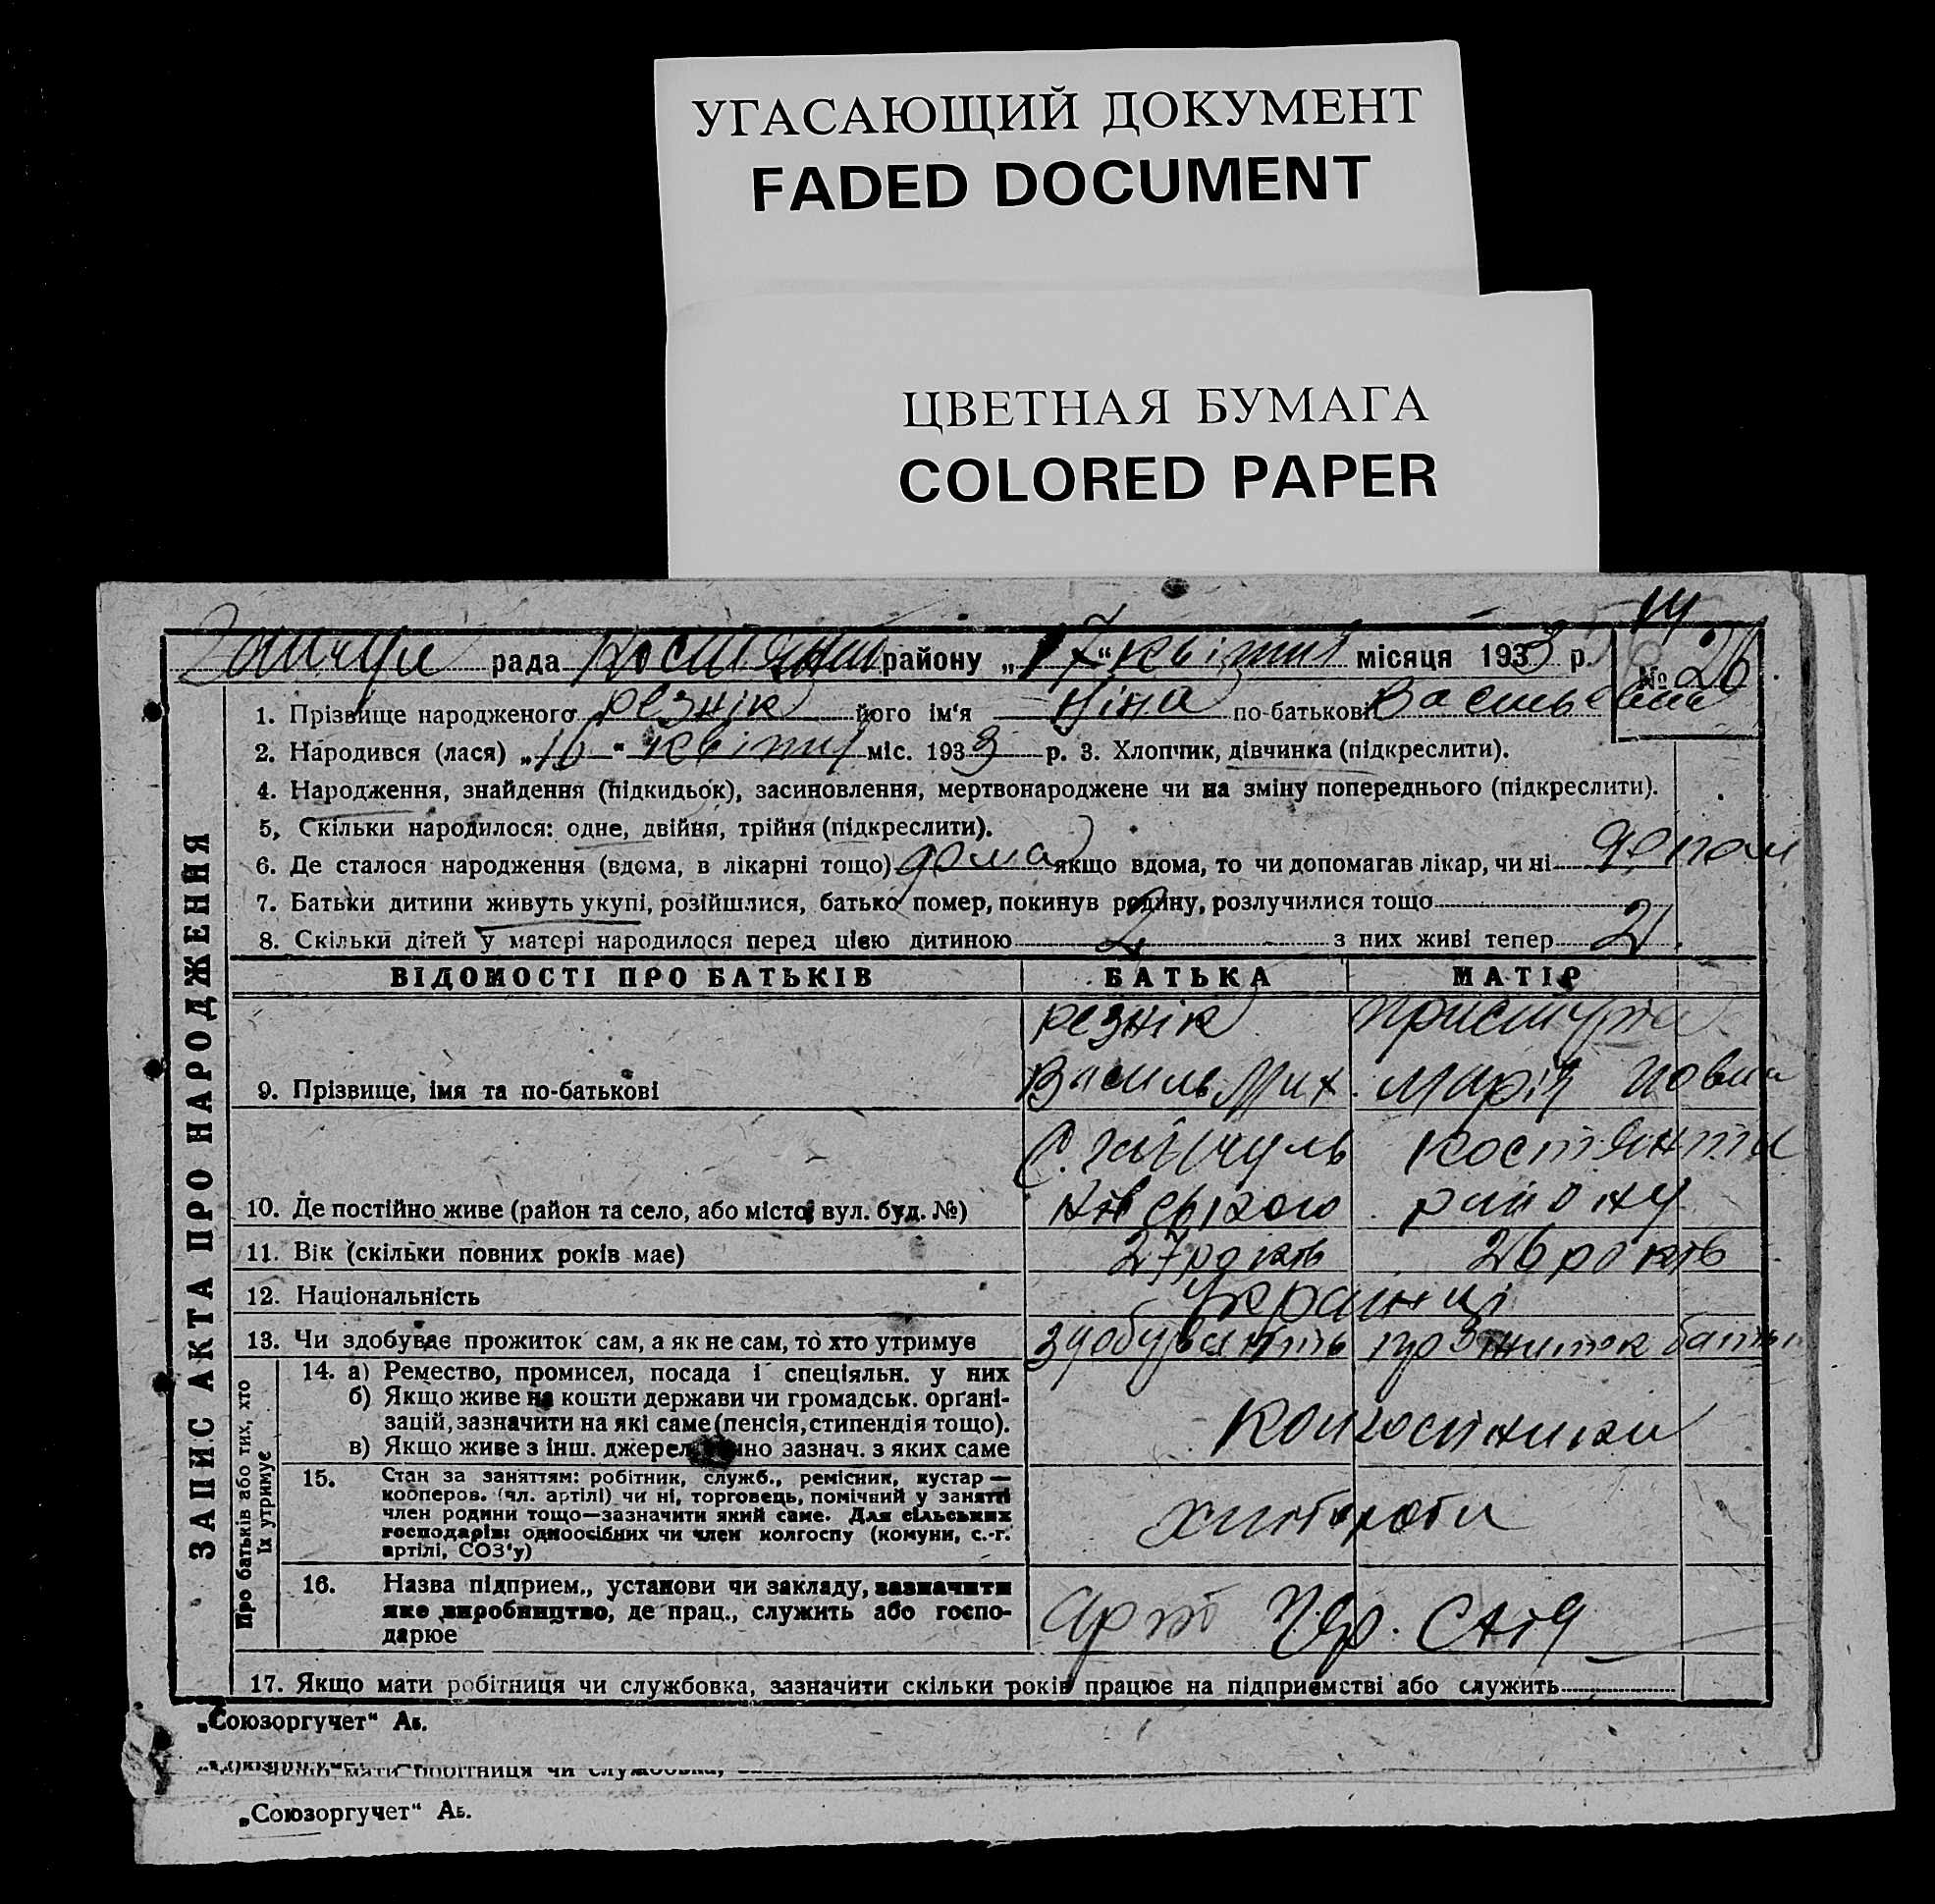 УГАСАЮЩИЙ ДОКУМЕНТ
FADED DOCUMENT
ЦВЕТНАЯ БУМАГА
COLORED PAPER
14
рада району „17“ квітня місяця 1933 р. № 26
1. Прізвище народженого резнік його ім‘я Ніна по-батькові
2. Народився (лася) „16“ квітня міс. 1933 р. 3. Хлопчик, дівчинка (підкреслити).
4. Народження, знайдення (підкидьок), засиновлення, мертвонароджене чи на зміну попереднього (підкреслити).
5, Скільки народилося: одне, двійня, трійня (підкреслити).
6. Де сталося народження (вдома, в лікарні тощо) дома якщо вдома, то чи допомагав лікар, чи ні
7. Батьки дитини живуть укупі, розійшлися, батько помер, покинув родину, розлучилися тощо
8. Скільки дітей у матері народилося перед цією дитиною 2 з них живі тепер 2
ЗАПИС АКТА ПРО НАРОДЖЕННЯ
ВІДОМОСТІ ПРО БАТЬКІВ БАТЬКА МАТІР
резнік
9. Прізвище, імя та по-батькові Василь Мих. Марія
10. Де постійно живе (район та село, або місто, вул. буд. №) району
11. Вік (скільки повних років має) 27 років 26 років
12. Національність Українці
13. Чи здобуває прожиток сам, а як не сам, то хто утримує
Про батьків або тих, хто їх утримує
14. а) Ремество, промисел, посада і спеціяльн. у них
б) Якщо живе на кошти держави чи громадськ. орґані-
зацій, зазначити на які саме (пенсія, стипендія тощо).
в) Якщо живе з інш. джерел зазнач. з яких саме
15. Стан за заняттям: робітник, служб., ремісник, кустар —
кооперов. (чл. артілі) чи ні, торговець, помічний у занятті
член родини тощо—зазначити який саме. Для сільських
господарів: одноосібних чи член колгоспу (комуни, с.-г.
артілі, СОЗ‘у)
16. Назва підприєм., установи чи закладу, зазначити
яке виробництво, де прац., служить або госпо-
дарює
17. Якщо мати робітниця чи службовка, зазначити скільки років працює на підприємстві або служить
„Союзоргучет“ Аб.
мати робітниця чи службовка,
„Союзоргучет“ Аб.